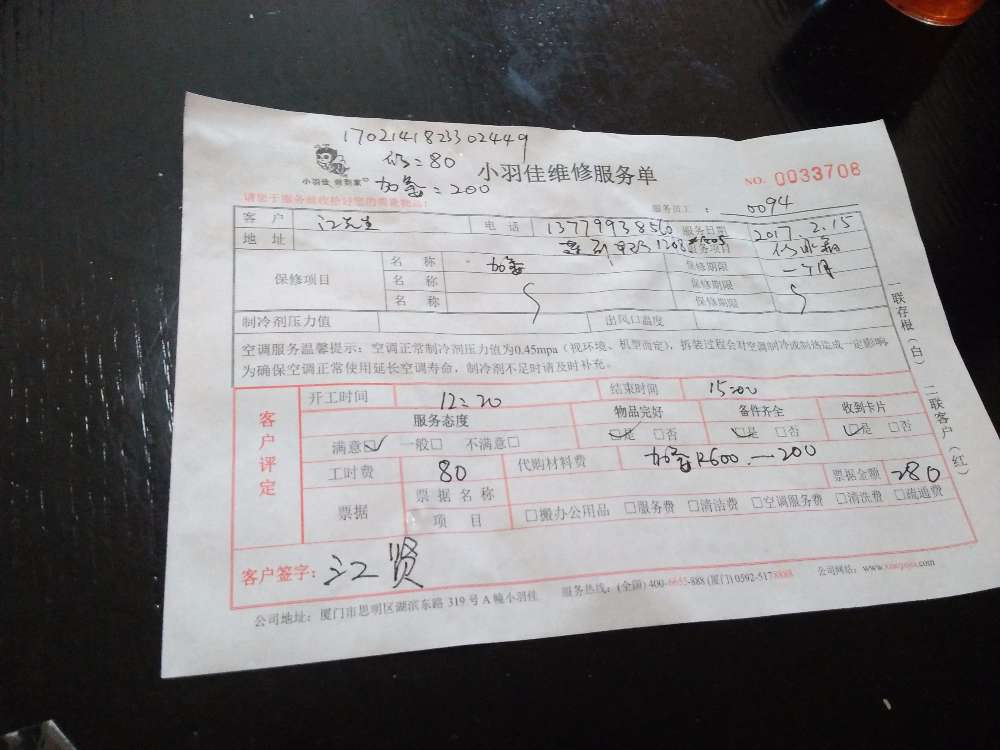 1702141823302449
修=80
加氟=200
小羽佳 做到家
小羽佳维修服务单
NO. 0033708
请您于服务前收拾好您的贵重物品!
服务员工: 0094
客户 江先生 电话 13779938560 服务日期 2017.2.15
地址 1203 服务项目 修冰箱
保修项目 名称 加氟 保修期限 一个月
名称 保修期限
名称 保修期限
制冷剂压力值 出风口温度
空调服务温馨提示:空调正常制冷剂压力值为0.45mpa(视环境、机型而定),拆装过程会对空调制冷或制热造成一定影响,
为确保空调正常使用延长空调寿命,制冷剂不足时请及时补充。
客户评定
开工时间 12:20 结束时间 15:00
服务态度 物品完好 备件齐全 收到卡片
满意☑ 一般□ 不满意□ ☑是 □否 ☑是 □否 ☑是 □否
工时费 80 代购材料费 加氟R600.—200
票据 票据名称 票据金额 280
项目 □搬办公用品 □服务费 □清洁费 □空调服务费 □清洗费 □疏通费
客户签字: 江贤
公司地址:厦门市思明区湖滨东路 319 号 A 幢小羽佳 服务热线:(全国) 400-6655-888 (厦门) 0592-5178888 公司网站:www.xiaoyujia.com
一联存根(白) 二联客户(红)